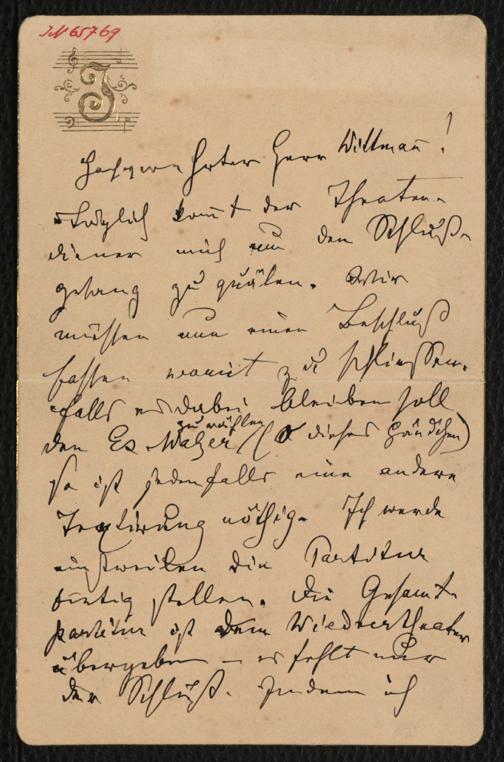 JN 65769
J
Hochgeehrter Herr Wittmann!
Täglich kommt der Theater-
diener mich um den Schluß-
gesang zu quälen. Wir
müssen nun einen Beschluß
fassen womit zu schliessen.
Falls es dabei bleiben soll
zu wählen
den Es Walzer (O dieses Händchen)
so ist jedenfalls eine andere
Textirung nöthig. Ich werde
einstweilen die Partitur
fertig stellen. Die Gesamt-
partitur ist dem Wiedner theater
übergeben – es fehlt nur
der Schluß. Indem ich